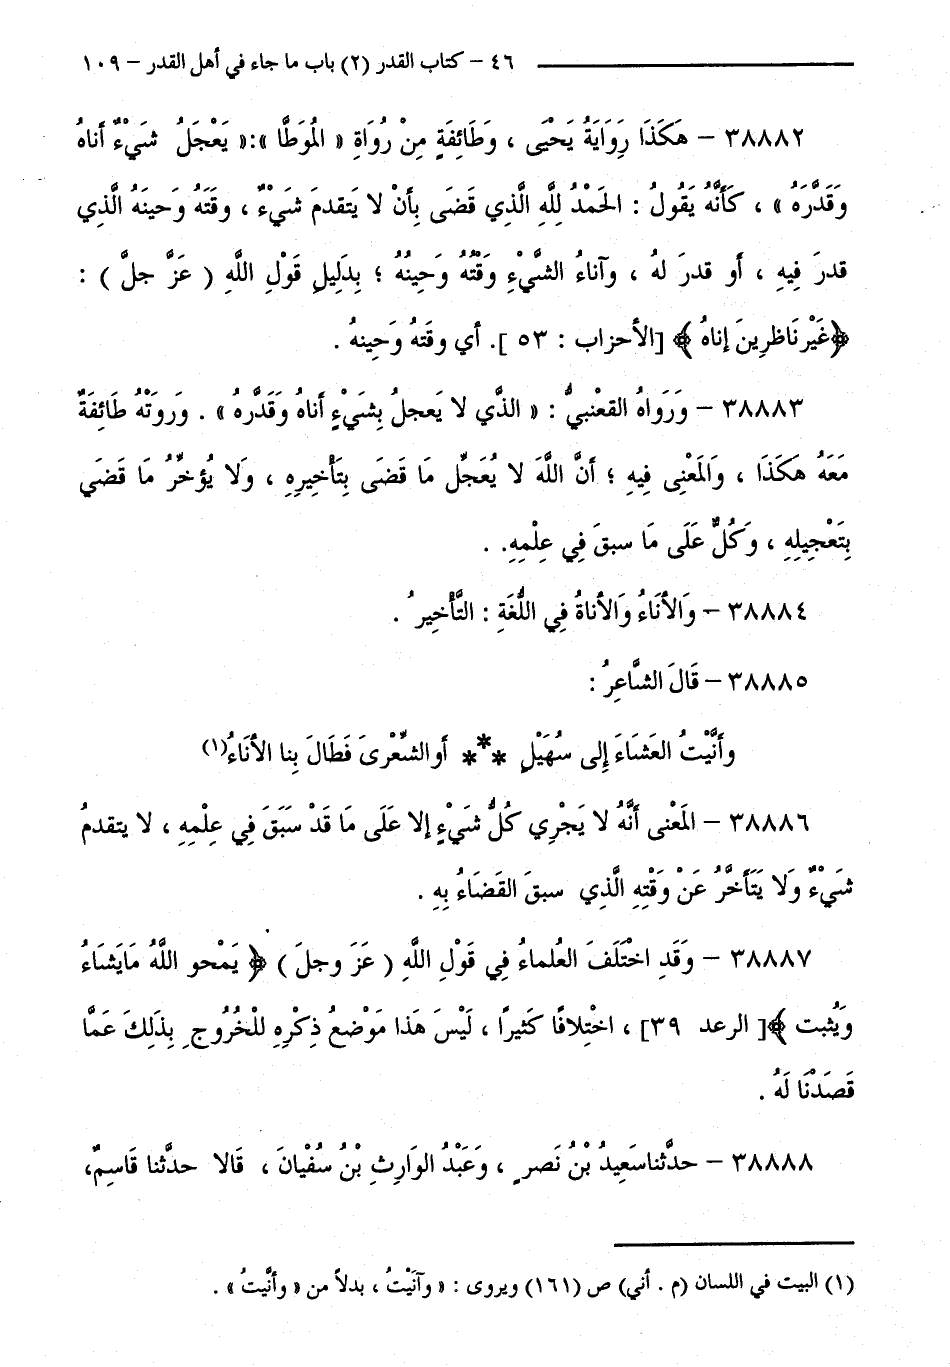 ٤٦ – كتاب القدر (٢) باب ما جاء في أهل القدر – ١٠٩
٣٨٨٨٢ – هَكَذَا رِوَايَةُ يَحْيَى ، وَطَائِفَةٍ مِنْ رُوَاةِ « المُوَطَّا »:« يَعْجَلُ شَيْءٌ أَناهُ
وَقَدَّرَهُ » ، كَأَنَّهُ يَقُولُ : الحَمْدُ لِلَّهِ الَّذي قَضَى بِأَنْ لا يَتقدمَ شَيْءٌ ، وقَتَهُ وَحينَهُ الَّذي
قدرَ فِيهِ ، أَو قدرَ لهُ ، وآناءُ الشَّيْءِ وَقْتُهُ وَحِينُهُ ؛ بِدَلِيلِ قَوْلِ اللَّهِ ( عَزَّ جلَّ ) :
﴿غَيْرَ نَاظرِينَ إناهُ ﴾ [الأحزاب : ٥٣ ]. أي وقَتهُ وَحِينهُ .
٣٨٨٨٣ – وَرَواهُ القعْنبيُّ : « الذَّي لا يَعجلُ بِشَيْءٍ أَناهُ وَقَدَّرهُ » . وَروَتْهُ طَائِفَةٌ
مَعَهُ هكَذَا ، وَالمَعْنى فِيهِ ؛ أَنَّ اللَّهَ لا يُعَجِّل مَا قَضَى بِتَأْخيرِهِ ، وَلا يُؤخِّرُ مَا قَضَي
بِتَعْجِيلِهِ ، وَكُلٌّ عَلَى مَا سبقَ فِي عِلْمِهِ. .
٣٨٨٨٤ – وَالأنَاءُ وَالأناةُ فِي اللُّغَةِ : التَّأْخِيرُ .
٣٨٨٨٥ – قَالَ الشَّاعِرُ :
وأَنَّيْتُ العَشَاءَ إِلى سُهَيْلٍ *** أَو الشِّعْرىَ فَطَالَ بِنا الأنَاءُ(١)
٣٨٨٨٦ – المَعْنى أَنَّهُ لا يَجْرِي كُلُّ شَيْءٍ إلا عَلَى مَا قَدْ سَبَقَ فِي عِلْمِهِ ، لا يتقدمُ
شَيْءٌ وَلا يَتَأَخَّرُ عَنْ وَقْتِهِ الَّذِي سبقَ القَضَاءُ بِهِ .
٣٨٨٨٧ – وَقَدِ اخْتَلَفَ العُلماءُ فِي قَوْلِ اللَّهِ ( عَزَ وجلَ ) ﴿ يَمْحو اللَّهُ مَايَشَاءُ
وَيُثبت ﴾[ الرعد ٣٩] ، اخْتِلافًا كَثيرًا ، لَيْسَ هَذا مَوْضعُ ذِكْرِهِ للْخُروجِ بِذَلِكَ عَمَّا
قَصَدْنَا لَهُ .
٣٨٨٨٨ – حدَّثناسَعِيدُ بْنُ نَصرٍ ، وَعَبْدُ الوَارِثِ بْنُ سُفْيانَ ، قَالا حدَّثنا قَاسِمٌ،
(١) البيت في اللسان (م . أني) ص (١٦١) ويروى : « وآنَيْتُ ، بدلاً من « وأنَّيتُ » .